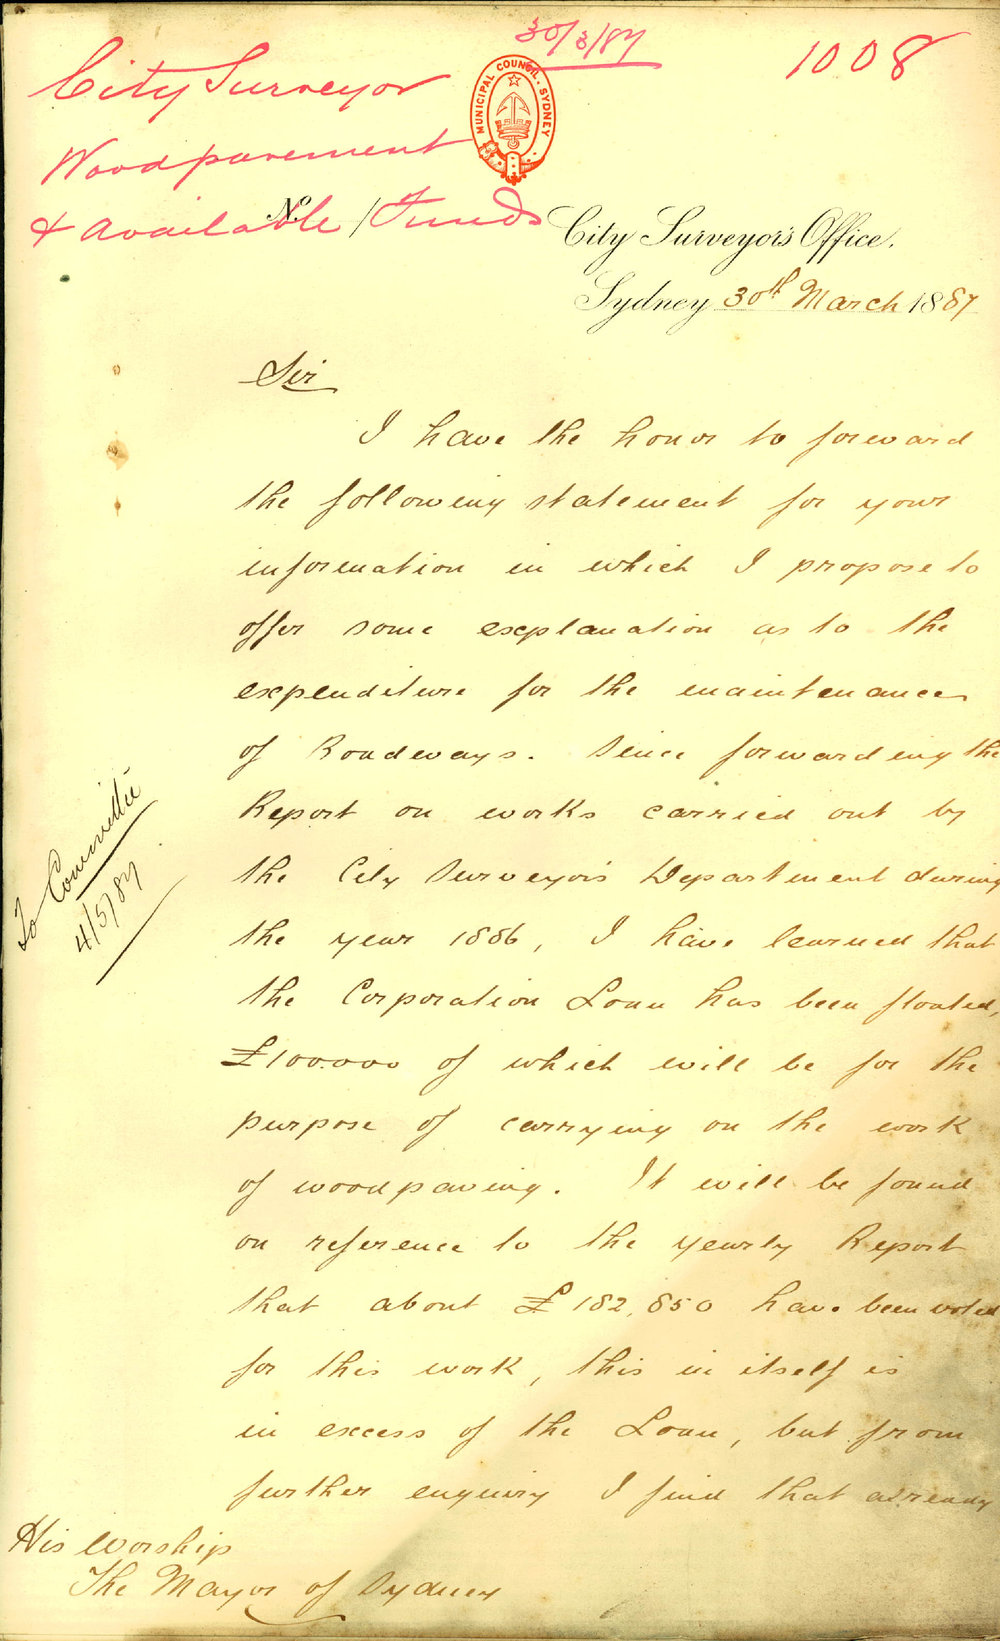 30/3/87
1008
City Surveyor
Woodpavement
& available Funds
MUNICIPAL COUNCIL. SYDNEY
No. /
City Surveyor's Office.
Sydney 30th March 1887
Sir
I have the honor to forward
the following statement for your
information in which I propose to
offer some explanation as to the
expenditure for the maintenance
of Roadways. Since forwarding the
Report on works carried out by
the City Surveyor's Department during
the year 1886, I have learned that
the Corporation Loan has been floated,
£100.000 of which will be for the
purpose of carrying on the work
of woodpaving. It will be found
on reference to the yearly Report
that about £182,850 have been voted
for this work, this in itself is
in excess of the Loan, but from
further enquiry I find that already
To Committee
4/5/87
His Worship
The Mayor of Sydney